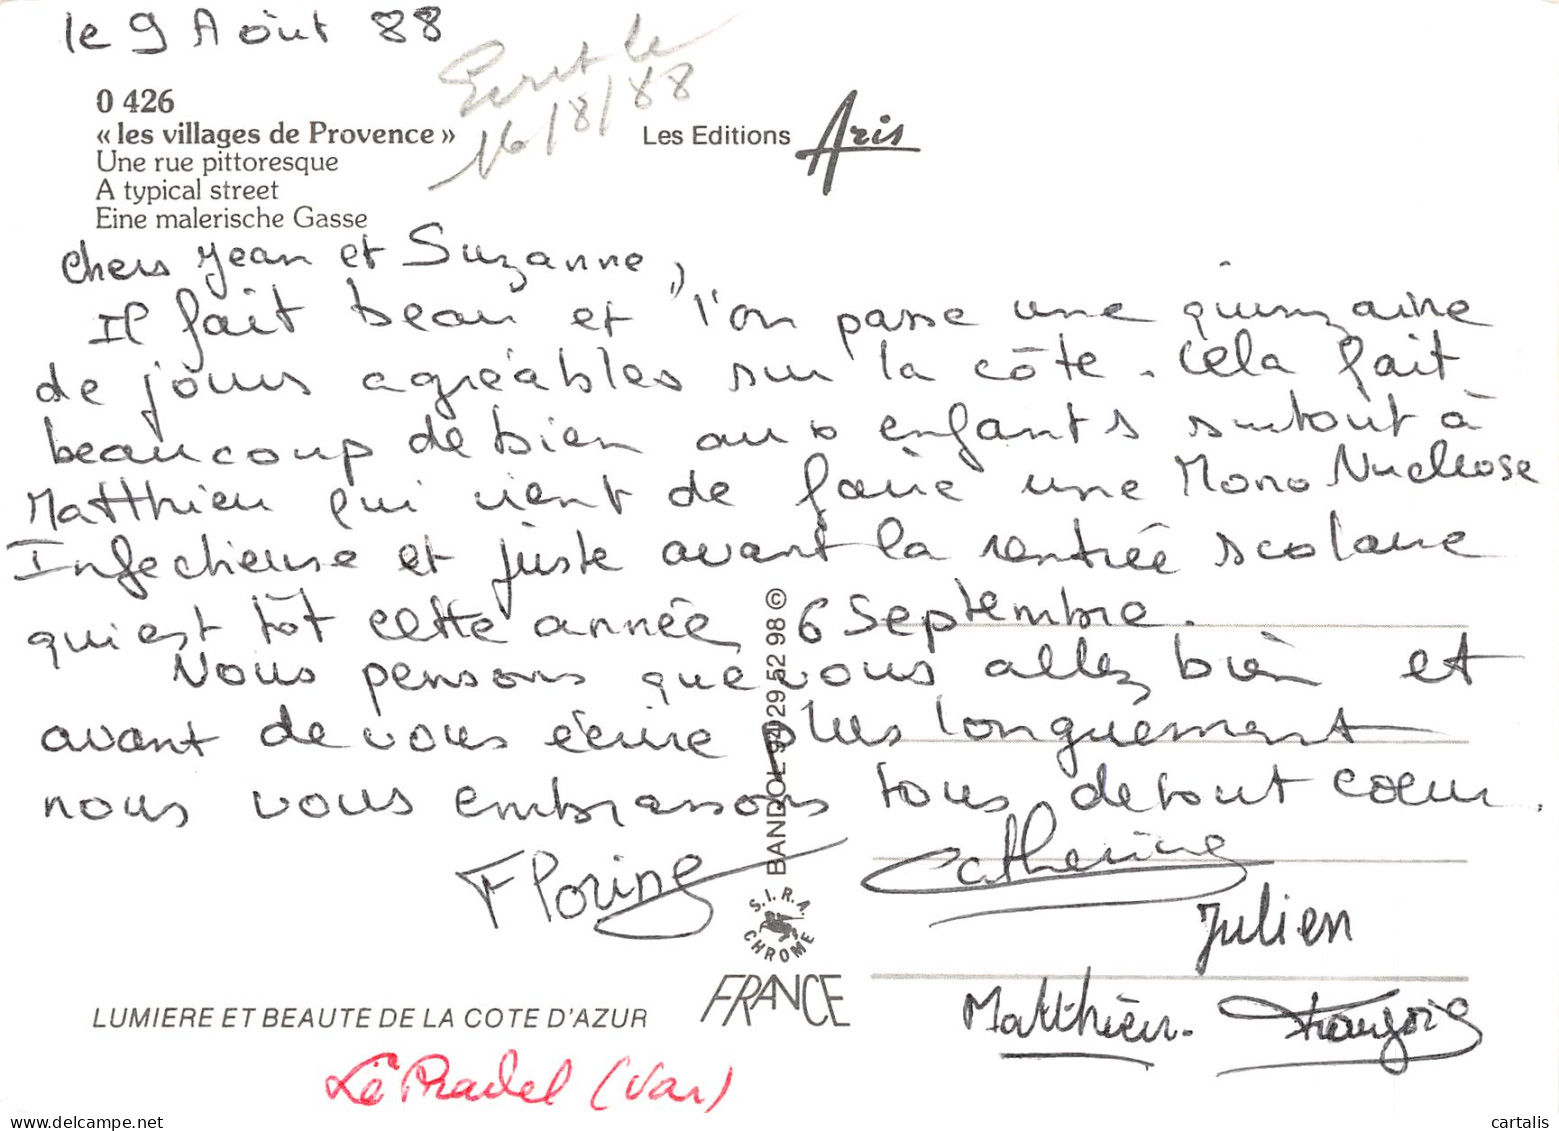 le 9 Août 88
Ecrit le
16/8/88
0 426
« les villages de Provence »
Une rue pittoresque
A typical street
Eine malerische Gasse
Les Editions Aris
Chers Jean et Suzanne,
Il fait beau et l'on passe une quinzaine
de jours agréables sur la côte. Cela fait
beaucoup de bien aux enfants surtout à
Matthieu qui vient de faire une Mono Nucléose
Infectieuse et juste avant la rentrée scolaire
qui est tôt cette année 6 Septembre.
Nous pensons que vous allez bien et
avant de vous écrire plus longuement
nous vous embrassons tous de tout coeur.
Florine
Catherine
Julien
Matthieu. François
BANDOL 94 29 52 98 ©
S.I.R.A.
CHROME
FRANCE
LUMIERE ET BEAUTE DE LA COTE D'AZUR
Le Pradel (Var)
www.delcampe.net
cartalis